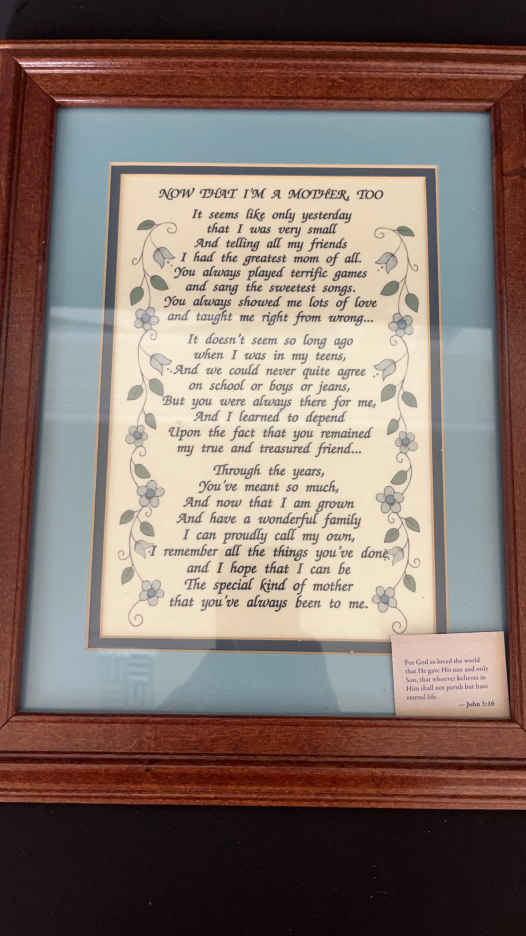 NOW THAT I'M A MOTHER, TOO
It seems like only yesterday
that I was very small
And telling all my friends
I had the greatest mom of all.
You always played terrific games
and sang the sweetest songs.
You always showed me lots of love
and taught me right from wrong...
It doesn't seem so long ago
when I was in my teens,
And we could never quite agree
on school or boys or jeans,
But you were always there for me,
And I learned to depend
Upon the fact that you remained
my true and treasured friend...
Through the years,
You've meant so much,
And now that I am grown
And have a wonderful family
I can proudly call my own,
I remember all the things you've done,
and I hope that I can be
The special kind of mother
that you've always been to me.
For God so loved the world
that He gave His one and only
Son, that whoever believes in
Him shall not perish but have
eternal life.
— John 3:16